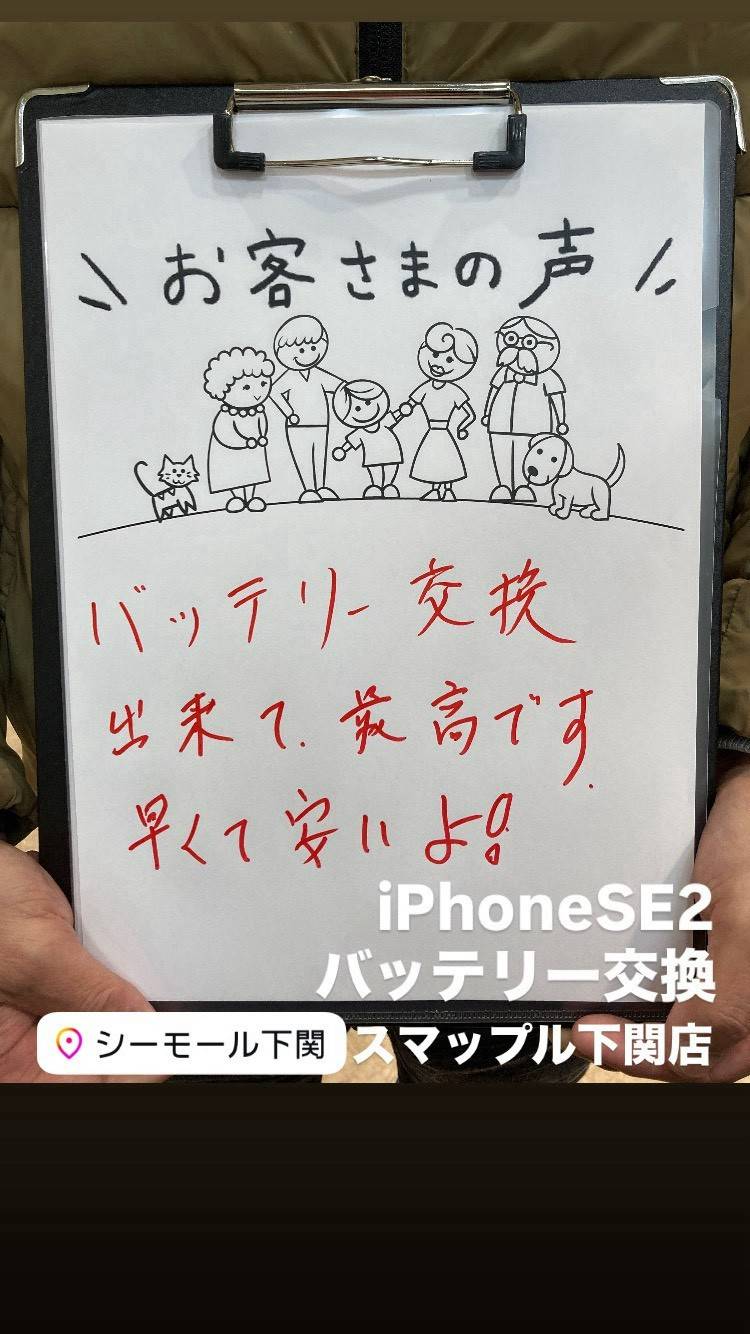 お客さまの声
バッテリー交換
出来て、最高です.
早くて安いよ!
iPhoneSE2
バッテリー交換
シーモール下関
スマップル下関店